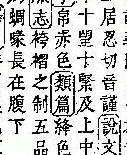 居忍切音謹説文
十望士緊及上中
帛赤色類篇絳色
志袴褶之制五品
蜩喙長在腹下